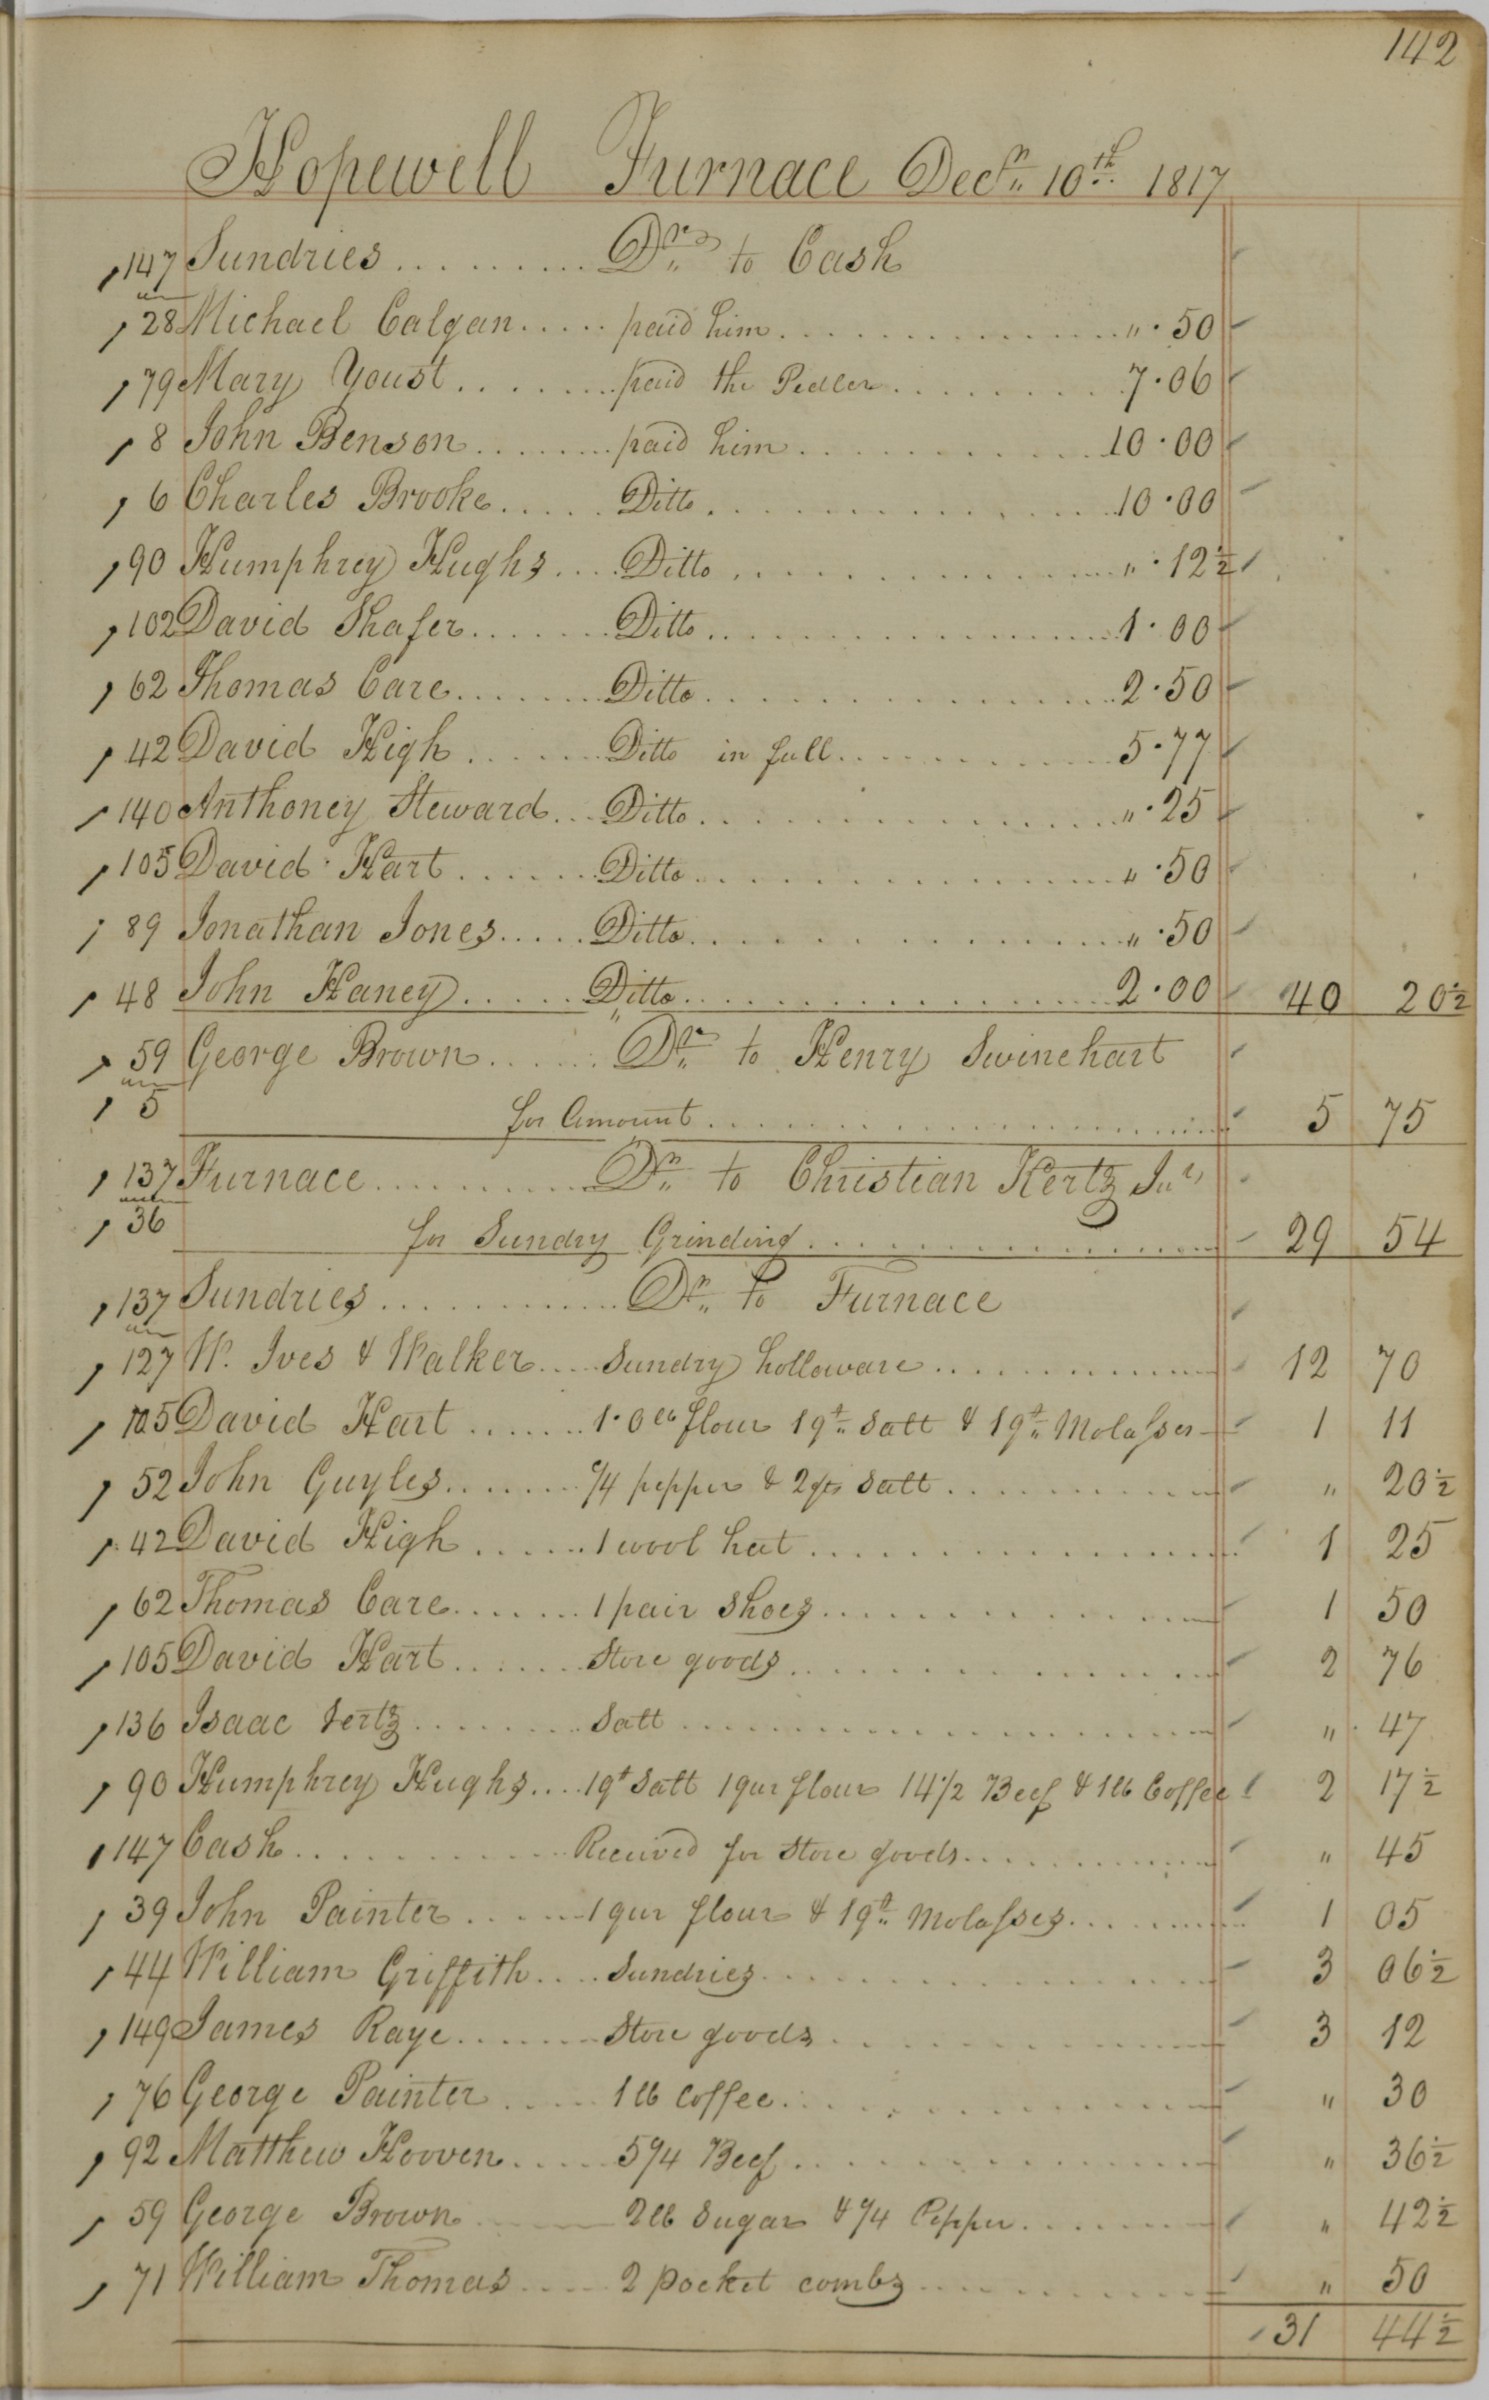 142
Hopewell Furnace Decr. 10th 1817
147 Sundries .......... Drs to Cash
28 Michael Calgan ..... paid him .............. " . 50
79 Mary Youst ........ paid the Pedler ........ 7.06
8 John Benson ........ paid him ............ 10.00
6 Charles Brooke ..... Ditto ............... 10.00
90 Humphrey Hughs .... Ditto ............... " . 12½
102 David Shafer ....... Ditto ................ 1.00
62 Thomas Care ....... Ditto ................ 2.50
42 David High ....... Ditto in full ............ 5.77
140 Anthoney Steward ... Ditto ................ " . 25
105 David Hart ....... Ditto ................ " . 50
89 Jonathan Jones ..... Ditto ................ " . 50
48 John Haney ...... Ditto ................ 2.00 40 20½
59 George Brown ....... Dr. to Henry Swinehart
5 for Amount .................... 5 75
137 Furnace ........... Dr. to Christian Hertz Junr
36 for Sundry Grinding ............... 29 54
137 Sundries ............ Dr. to Furnace
127 W. Ives & Walker .... Sundry Holloware ............ 12 70
105 David Hart ....... 1.0 lb flour 1 qt. Salt & 1 qt. Molasses 1 11
52 John Guyles ....... ¼ pepper & 2 qts Salt ........... " 20½
42 David High ...... 1 wool hat ................ 1 25
62 Thomas Care ....... 1 pair Shoes ............... 1 50
105 David Hart ....... Store goods ............... 2 76
136 Isaac Sertz ........ Salt .................... " 47
90 Humphrey Hughs .... 1 qt Salt 1 qur flour 14½ Beef & 1 lb Coffee 2 17½
147 Cash ............ Received for Store goods ........... " 45
39 John Painter ...... 1 qur flour & 1 qt. Molasses ......... 1 05
44 William Griffith .... Sundries ................. 3 06½
149 James Raye ....... Store goods .............. 3 12
76 George Painter ..... 1 lb Coffee ............... " 30
92 Matthew Hooven ..... 5 ¼ Beef ................ " 36½
59 George Brown ..... 2 lb Sugar & ¼ Pepper ......... " 42½
71 William Thomas .... 2 pocket combs ............ " 50
31 44½